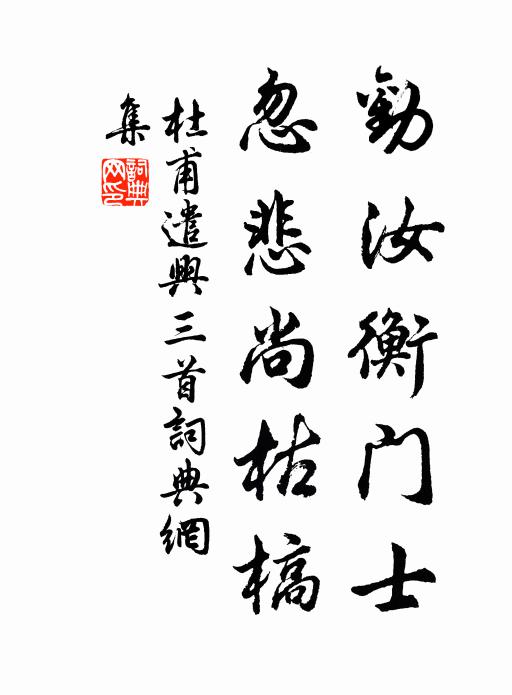 勸汝衡门士
忽悲尚枯槁
杜甫遣興三首詞典網
集
詞典网印